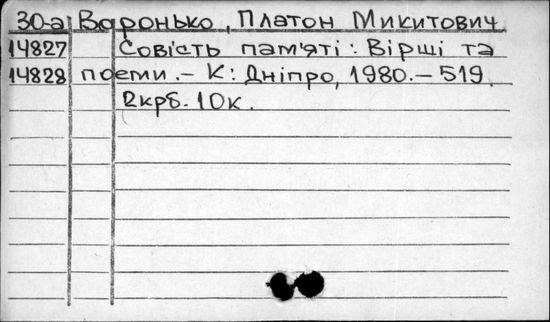 30-а Воронько, Платон Микитович
14827 Совість пам'яті: Вірші та
14828 поеми.- К: Дніпро, 1980.- 519.
2крб. 10к.